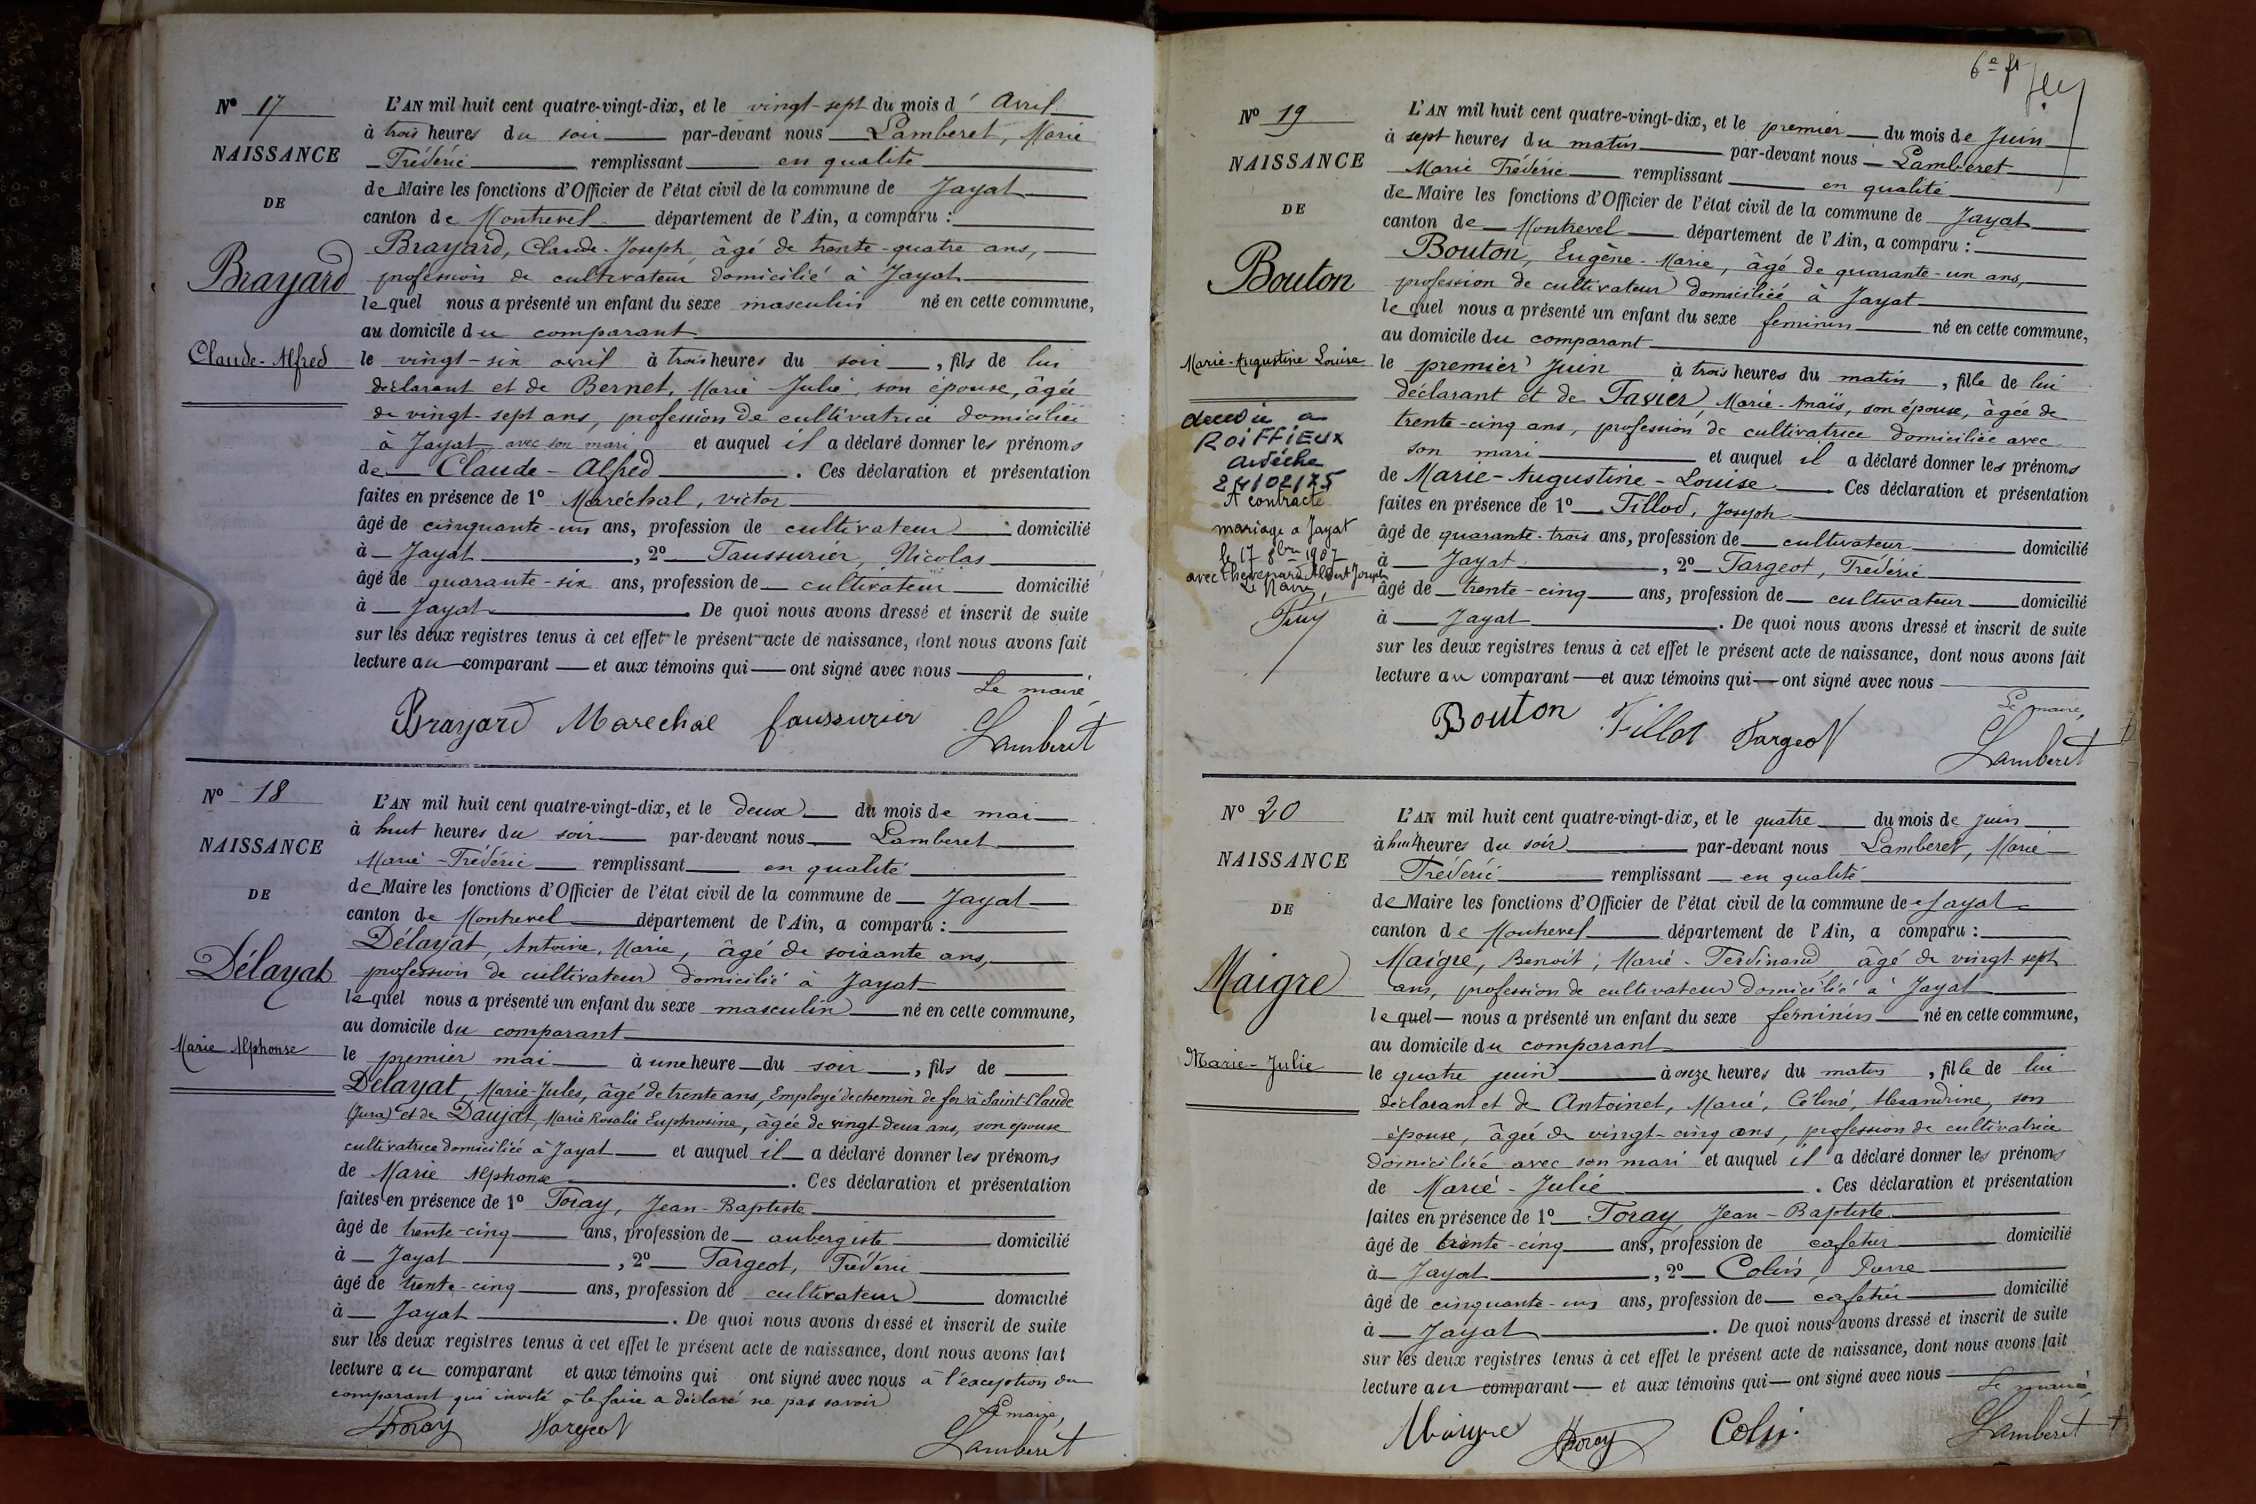 N° 17
NAISSANCE
DE
Brayard
Claude-Alfred
L'AN mil huit cent quatre-vingt-dix, et le vingt-sept du mois d'Avril
à trois heures du soir par-devant nous Lamberet, Marie
Frédéric remplissant en qualité
de Maire les fonctions d'Officier de l'état civil de la commune de Jayat
canton de Montrevel département de l'Ain, a comparu :
Brayard, Claude-Joseph, âgé de trente-quatre ans,
profession de cultivateur domicilié à Jayat
lequel nous a présenté un enfant du sexe masculin né en cette commune,
au domicile du comparant
le vingt-six avril à trois heures du soir, fils de lui
déclarant et de Bernet, Marie Julie, son épouse, âgée
de vingt-sept ans, profession de cultivatrice domiciliée
à Jayat avec son mari et auquel il a déclaré donner les prénoms
de Claude-Alfred. Ces déclaration et présentation
faites en présence de 1° Maréchal, Victor
âgé de cinquante-un ans, profession de cultivateur domicilié
à Jayat, 2° Faussurier, Nicolas
âgé de quarante-six ans, profession de cultivateur domicilié
à Jayat. De quoi nous avons dressé et inscrit de suite
sur les deux registres tenus à cet effet le présent acte de naissance, dont nous avons fait
lecture au comparant et aux témoins qui ont signé avec nous
Le maire,
Brayard Marechal faussurier Lamberet
N° 18
NAISSANCE
DE
Délayat
Marie Alphonse
L'AN mil huit cent quatre-vingt-dix, et le deux du mois de mai
à huit heures du soir par-devant nous Lamberet
Marie-Frédéric remplissant en qualité
de Maire les fonctions d'Officier de l'état civil de la commune de Jayat
canton de Montrevel département de l'Ain, a comparu :
Délayat, Antoine, Marie, âgé de soixante ans,
profession de cultivateur domicilié à Jayat
lequel nous a présenté un enfant du sexe masculin né en cette commune,
au domicile du comparant
le premier mai à une heure du soir, fils de
Délayat, Marie-Jules, âgé de trente ans, Employé de chemin de fer à Saint-Claude
(Jura) et de Daujat, Marie Rosalie Euphrosine, âgée de vingt-deux ans, son épouse
cultivatrice domiciliée à Jayat et auquel il a déclaré donner les prénoms
de Marie Alphonse. Ces déclaration et présentation
faites en présence de 1° Foray, Jean-Baptiste
âgé de trente-cinq ans, profession de aubergiste domicilié
à Jayat, 2° Fargeot, Frédéric
âgé de trente-cinq ans, profession de cultivateur domicilié
à Jayat. De quoi nous avons dressé et inscrit de suite
sur les deux registres tenus à cet effet le présent acte de naissance, dont nous avons fait
lecture au comparant et aux témoins qui ont signé avec nous à l'exception du
comparant qui invité à le faire a déclaré ne pas savoir
Le maire,
Foray Fargeot Lamberet
6e ft
N° 19
NAISSANCE
DE
Bouton
Marie-Augustine Louise
décédée a
ROIFFIEUX
Ardèche
24/02/75
A contracté
mariage a Jayat
le 17 8bre 1907
avec Thevenard Albert Joseph
Le Maire,
L'AN mil huit cent quatre-vingt-dix, et le premier du mois de Juin
à sept heures du matin par-devant nous Lamberet
Marie Frédéric remplissant en qualité
de Maire les fonctions d'Officier de l'état civil de la commune de Jayat
canton de Montrevel département de l'Ain, a comparu :
Bouton, Eugène-Marie, âgé de quarante-un ans,
profession de cultivateur domiciliée à Jayat
lequel nous a présenté un enfant du sexe feminin né en cette commune,
au domicile du comparant
le premier Juin à trois heures du matin, fille de lui
déclarant et de Favier, Marie-Anaïs, son épouse, âgée de
trente-cinq ans, profession de cultivatrice domiciliée avec
son mari et auquel il a déclaré donner les prénoms
de Marie-Augustine-Louise. Ces déclaration et présentation
faites en présence de 1° Fillod, Joseph
âgé de quarante-trois ans, profession de cultivateur domicilié
à Jayat, 2° Fargeot, Frédéric
âgé de trente-cinq ans, profession de cultivateur domicilié
à Jayat. De quoi nous avons dressé et inscrit de suite
sur les deux registres tenus à cet effet le présent acte de naissance, dont nous avons fait
lecture au comparant et aux témoins qui ont signé avec nous
Le maire,
Bouton Fillod Fargeot Lamberet
N° 20
NAISSANCE
DE
Maigre
Marie-Julie
L'AN mil huit cent quatre-vingt-dix, et le quatre du mois de juin
à huit heures du soir par-devant nous Lamberet, Marie
Frédéric remplissant en qualité
de Maire les fonctions d'Officier de l'état civil de la commune de Jayat
canton de Montrevel département de l'Ain, a comparu :
Maigre, Benoit, Marie-Ferdinand âgé de vingt sept
ans, profession de cultivateur domicilié à Jayat
lequel nous a présenté un enfant du sexe féminin né en cette commune,
au domicile du comparant
le quatre juin à onze heures du matin, fille de lui
déclarant et de Antoinet, Marie, Céline, Alexandrine, son
épouse, âgée de vingt-cinq ans, profession de cultivatrice
domiciliée avec son mari et auquel il a déclaré donner les prénoms
de Marie-Julie. Ces déclaration et présentation
faites en présence de 1° Foray Jean-Baptiste
âgé de trente-cinq ans, profession de cafetier domicilié
à Jayat, 2° Colin, Pierre
âgé de cinquante-un ans, profession de cafetier domicilié
à Jayat. De quoi nous avons dressé et inscrit de suite
sur les deux registres tenus à cet effet le présent acte de naissance, dont nous avons fait
lecture au comparant et aux témoins qui ont signé avec nous
Le maire,
Maigre Foray Colin Lamberet